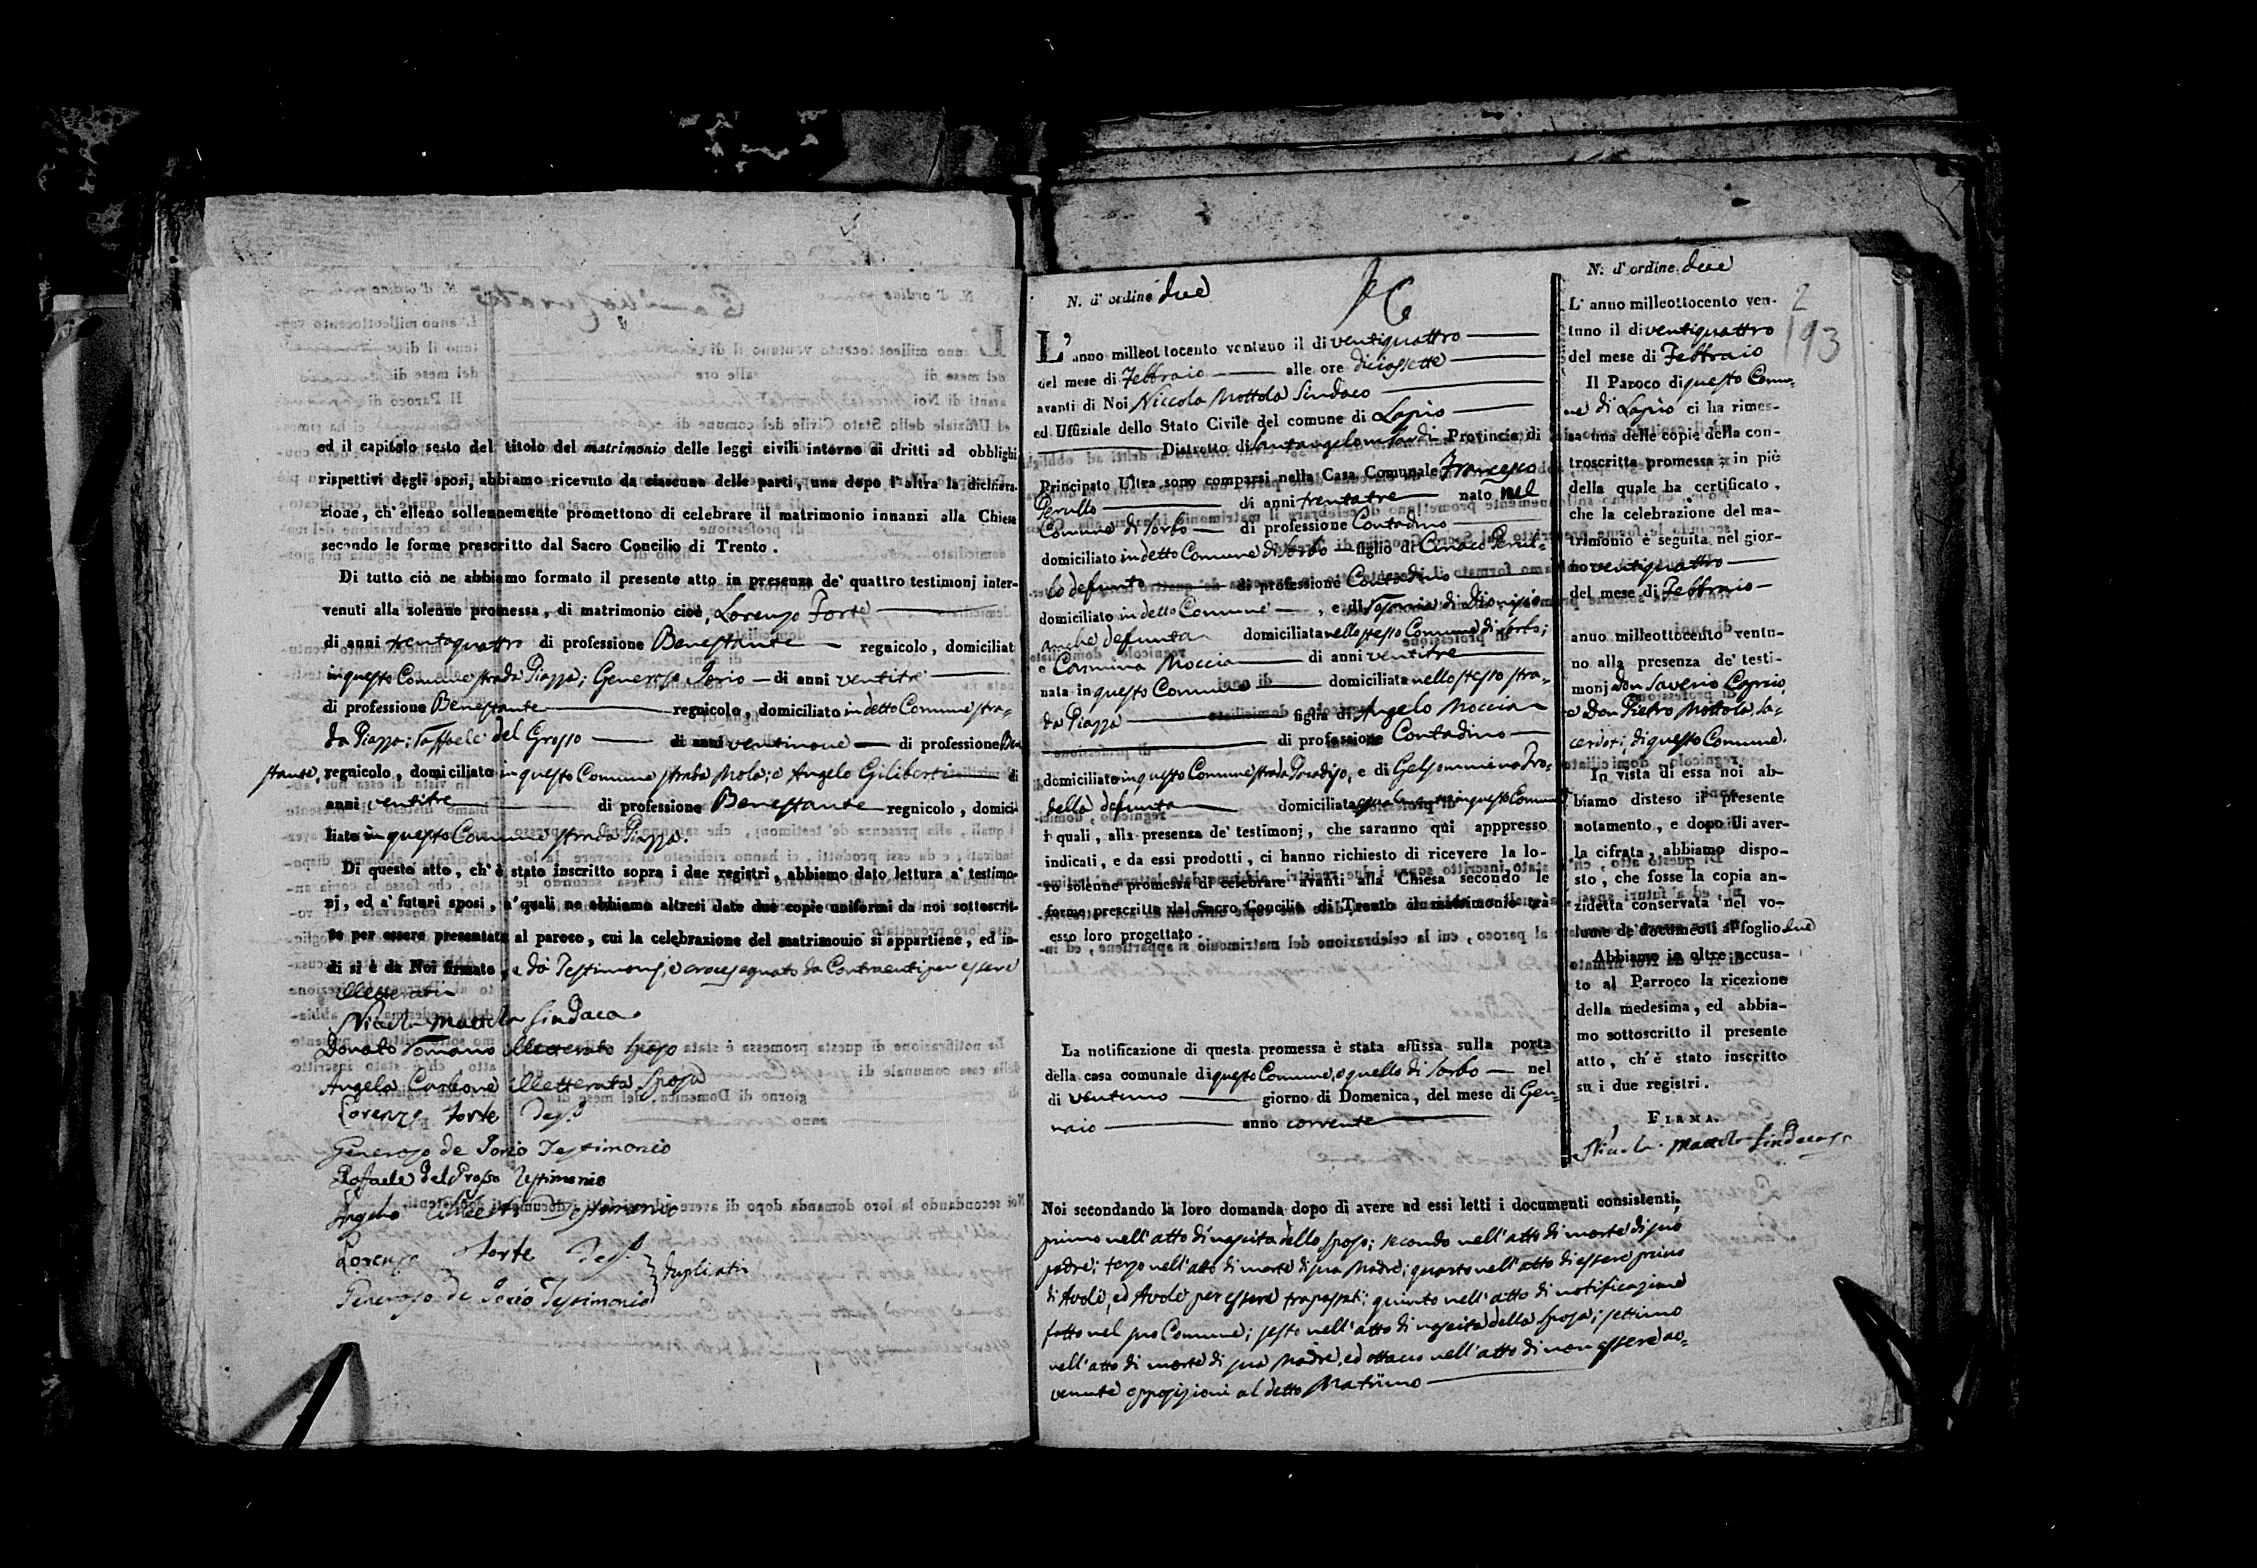 ed il capitolo sesto del titolo del matrimonio delle leggi civili intorno ai dritti ad obblighi
rispettivi degli sposi, abbiamo ricevuto da ciascuna delle parti, una dopo l'altra la dichiara-
zione, ch'elleno sollennemente promettono di celebrare il matrimonio innanzi alla Chiesa
secondo le forme prescritto dal Sacro Concilio di Trento.
Di tutto ciò ne abbiamo formato il presente atto in presenza de' quattro testimonj inter-
venuti alla solenne promessa, di matrimonio cioè, Lorenzo Forte
di anni trentaquattro di professione Benestante regnicolo, domiciliat
in questo Comune strada Piazza; Generoso Iorio di anni ventitre
di professione Benestante regnicolo, domiciliato in detto Comune stra-
da Piazza; Raffaele del Grosso di anni ventinove di professione Ben
stante, regnicolo, domiciliato in questo Comune strada Mola; e Angelo Giliberti di
anni ventitre di professione Benestante regnicolo, domici-
liato in questo Comune strada Piazza.
Di questo atto, ch'è stato inscritto sopra i due registri, abbiamo dato lettura a' testimo-
nj, ed a' futuri sposi, a' quali ne abbiamo altresi date due copie uniformi da noi sottoscrit-
te per essere presentate al paroco, cui la celebrazione del matrimonio si appartiene, ed in-
di si è da Noi firmato, e da Testimonj, e crocesegnato da Contraenti per essere
illetterati
Nicola Mottola Sindaco
Donato Romano illetterato sposo
Angela Carbone illetterata sposa
Lorenzo Forte Tes.º
Generoso de Iorio Testimonio
Rafaele del Grosso Testimonio
Angelo Giliberti Testimonio
Lorenzo Forte Tes.º
Generoso de Iorio Testimonio
duplicati
N. d'ordine due
L'anno milleottocento ventuno il di ventiquattro
del mese di Febbraio alle ore diciassette
avanti di Noi Niccola Mottola Sindaco
ed Uffiziale dello Stato Civile del comune di Lapio
Distretto di Santangelolombardi Provincia di
Principato Ultra sono comparsi nella Casa Comunale Francesco
Perullo di anni trentatre nato nel
Comune di Sorbo di professione Contadino
domiciliato in detto Comune di Sorbo figlio di Ciriaco Perul-
lo defunto di professione Contadino
domiciliato in detto Comune, e di di Dionisio
anche defunta domiciliata nello stesso Comune di Sorbo;
e Carmina Moccia di anni ventitre
nata in questo Comune domiciliata nello stesso stra-
da Piazza figlia di Angelo Moccia
di professione Contadino
domiciliato in questo Comune strada Paradiso, e di Gelsommina Tro-
della defunta domiciliata in questo Comune
i quali, alla presenza de' testimonj, che saranno qui apppresso
indicati, e da essi prodotti, ci hanno richiesto di ricevere la lo-
ro solenne promessa di celebrare avanti alla Chiesa secondo le
forme prescritte dal Sacro Concilio di Trento il matrimonio trà
esso loro progettato.
La notificazione di questa promessa è stata affissa sulla porta
della casa comunale di questo Comune, e quello di Sorbo nel
di ventuno giorno di Domenica, del mese di Gen-
naio anno corrente
Noi secondando la loro domanda dopo di avere ad essi letti i documenti consistenti,
primo nell'atto di nascita dello sposo; secondo nell'atto di morte di suo
padre; terzo nell'atto di morte di sua Madre; quarto nell'atto di essere privo
di Avoli, ed Avole per essere trapassati; quinto nell'atto di notificazione
fatto nel suo Comune; sesto nell'atto di nascita della sposa; settimo
nell'atto di morte di sua Madre, ed ottavo nell'atto di non essere av-
venute opposizioni al detto Matrimo
N. d'ordine due
L'anno milleottocento ven-
tuno il di ventiquattro
del mese di Febbraio
Il Paroco di questo Comu-
ne di Lapio ci ha rimes-
sa una delle copie della con-
troscritta promessa; in piè
della quale ha certificato,
che la celebrazione del ma-
trimonio è seguita nel gior-
no ventiquattro
del mese di Febbraio
anno milleottocento ventu-
no alla presenza de' testi-
monj don Saverio Caprio,
e Don Pietro Mottola Sa-
cerdoti, di questo Comune.
In vista di essa noi ab-
biamo disteso il presente
notamento, e dopo di aver-
la cifrata, abbiamo dispo-
sto, che fosse la copia an-
zidetta conservata nel vo-
lume de documenti al foglio due
Abbiamo in oltre accusa-
to al Parroco la ricezione
della medesima, ed abbia-
mo sottoscritto il presente
atto, ch'è stato inscritto
su i due registri.
FIRMA.
Nicola Mottola Sindaco
2
193